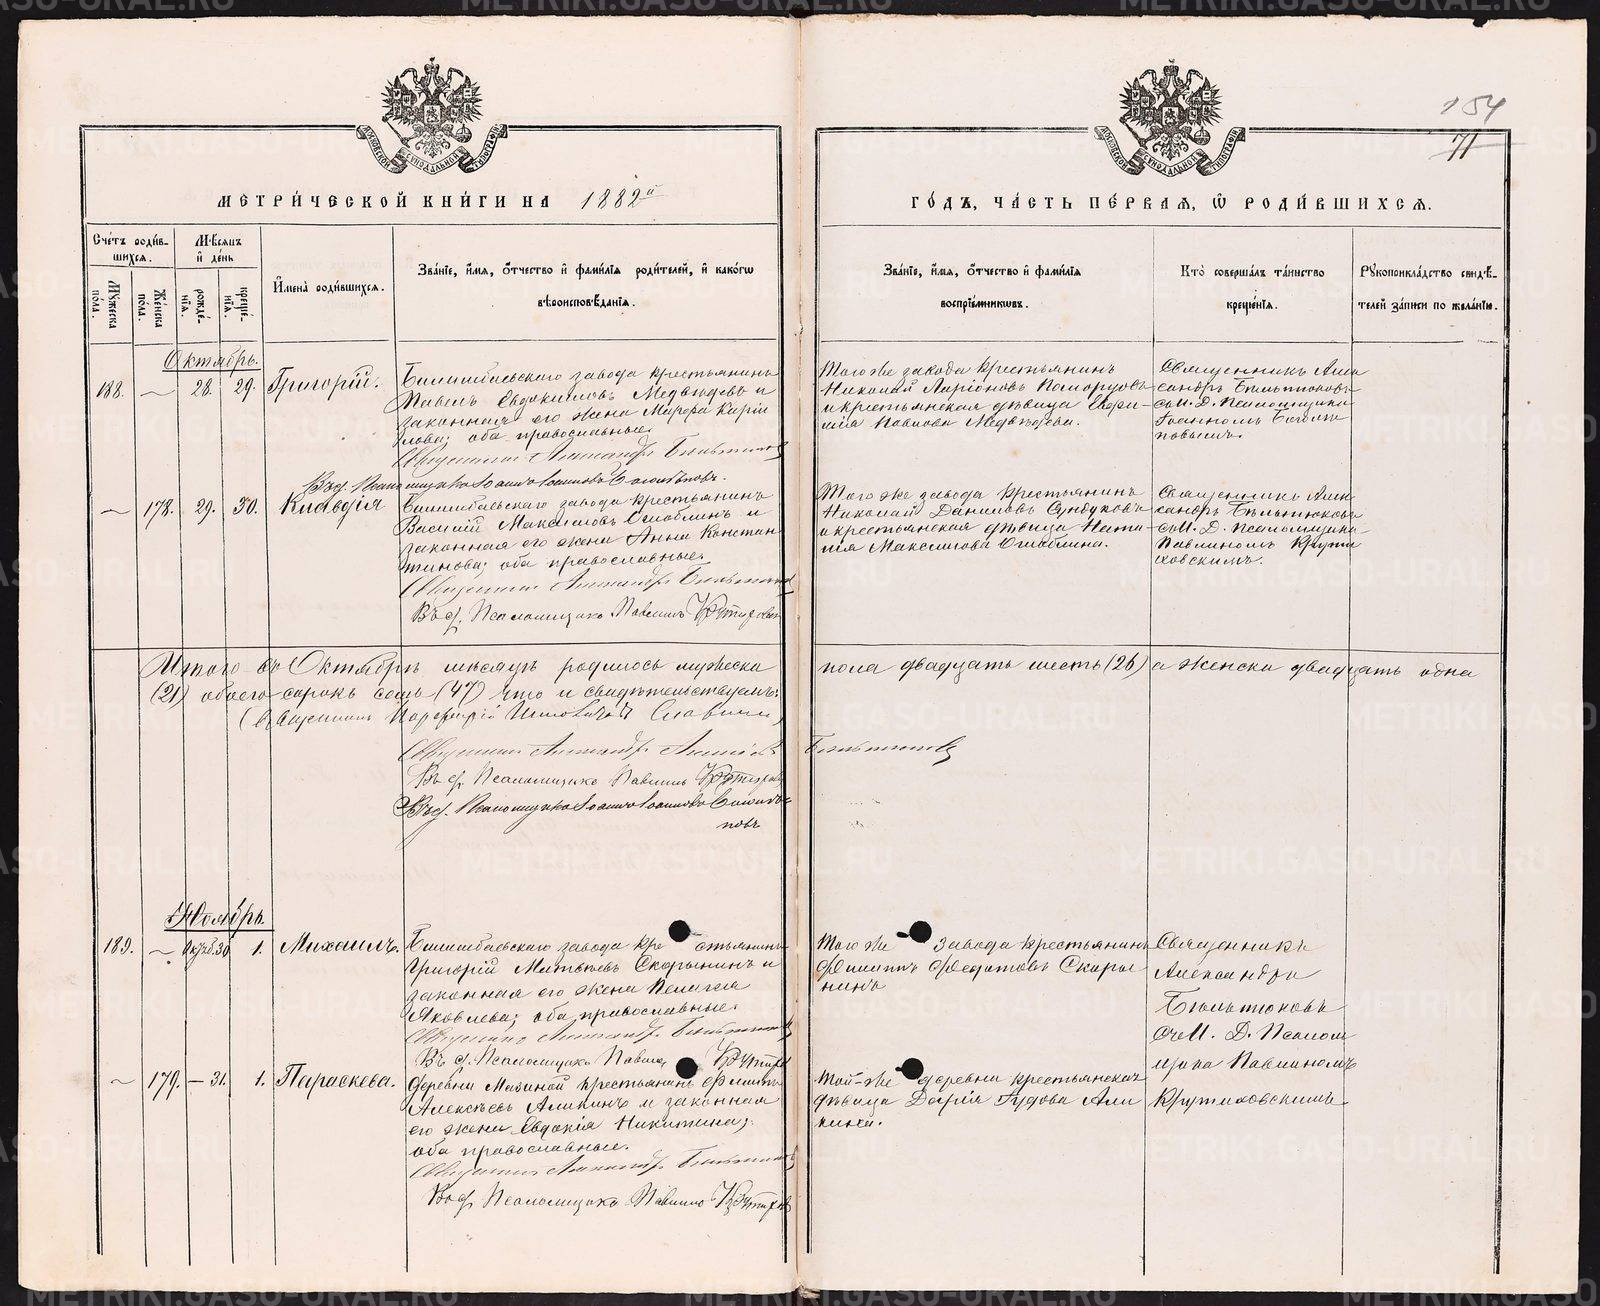 154
71
МЕТРИ́ЧЕСКОЙ КНИ́ГИ НА 1882й
ГО́ДЪ, ЧА́СТЬ ПЕ́РВАЯ, Ѡ РОДИ́ВШИХСЯ.
Сче́тъ роди́в-
шихся.
Мѣ́сяцъ
и́ де́нь
Мꙋ́жеска
по́ла.
Же́нска
по́ла.
рожде́-
нїя.
креще́-
нїя.
И́мена̀ роди́вшихся.
Зва́нїе, и́мя, ѻ́тчество и́ фами́лїя роди́телей, и́ како́гѡ
вѣроисповѣ́данїя.
Зва́нїе, и́мя, ѻ́тчество и́ фами́лїя
воспрїе́мниковъ.
Кто̀ соверша́лъ та́инство
креще́нїя.
Рꙋкоприкла́дство свидѣ́-
телей за́писи по жела́нїю.
Октябрь.
188. — 28. 29. Григорій.
Билимбаевскаго завода крестьянинъ
Павелъ Евдокимовъ Медвѣдевъ и
законная его жена Марѳа Карпи
лова; оба православные.
Священникъ Александръ Бильтюковъ
Въ д. Псаломщика Іоаннъ Іоанновъ
Того же завода крестьянинъ
Николай Ларіоновъ
и крестьянская дѣвица
Павлова Медвѣдева.
Священникъ Алек
сандръ Бильтюковъ
съ И. Д. Псаломщика
Іоанномъ Бого
повымъ.
— 178. 29. 30. Клавдія
Билимбаевскаго завода крестьянинъ
Василій Максимовъ Оглоблинъ и
законная его жена Анна Констан
тинова; оба православные.
Священникъ Александръ Бильтюковъ
Въ д. Псаломщика Павлинъ Крутиховскій
Того же завода крестьянинъ
Николай Даниловъ Сундуковъ
и крестьянская дѣвица Ната
лія Максимова Оглоблина.
Священникъ Алек
сандръ Бильтюковъ
съ И. Д. Псаломщика
Павлиномъ Крути
ховскимъ.
Итого въ Октябрѣ мѣсяцѣ родилось мужеска пола двадцать шесть (26) а женска двадцать одна
(21) обоего сорокъ семь (47) что и свидѣтельствуемъ:
Священникъ Порфирій Славнинъ
Священникъ Александръ Бильтюковъ
Въ д. Псаломщика Павлинъ Крутиховскій
Въ д. Псаломщика Іоаннъ Іоанновъ
повъ
Ноябрь.
189. — Октб. 30 1. Михаилъ.
Билимбаевскаго завода крестьянинъ
Григорій Матвѣевъ Скорынинъ и
законная его жена Пелагія
Яковлева; оба православные.
Священникъ Александръ Бильтюковъ
Въ д. Псаломщика Павлинъ Крутиховскій
Того же завода крестьянинъ
Филиппъ Федотовъ Скоры
нинъ
Священникъ
Александръ
Бильтюковъ
съ И. Д. Псалом
щика Павлиномъ
Крутиховскимъ
— 179. — 31. 1. Параскева.
Деревни крестьянинъ Филиппъ
Алексѣевъ Аликинъ и законная
его жена Евдокія Никитина;
оба православные.
Священникъ Александръ Бильтюковъ
Въ д. Псаломщика Павлинъ Крутиховскій
Той-же деревни крестьянская
дѣвица Дарія Гудова Али
кина.
METRIKI.GASO-URAL.RU